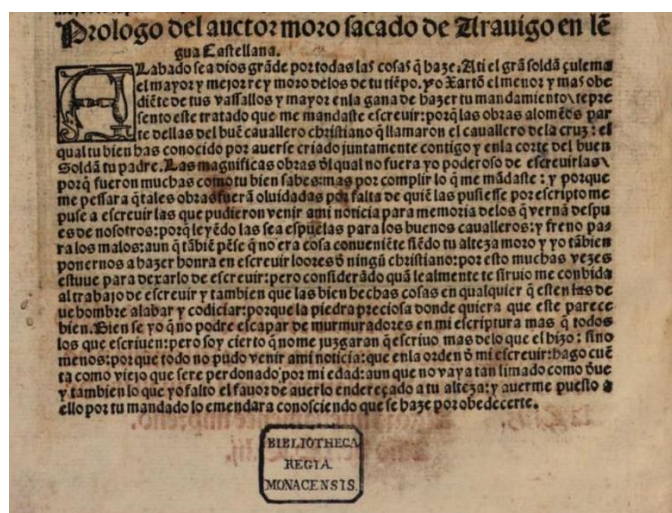 Prologo del auctor moro sacado de Arauigo en lẽ
gua Castellana.
ALabado sea dios grãde por todas las cosas q̃ haze. A ti el grã soldã çulema
el mayor y mejor rey moro delos de tu tiẽpo. yo Xartõ el menor y mas obe
diẽte de tus vassallos y mayor enla gana de hazer tu mandamiento\ te pre
sento este tratado que me mandaste escreuir: porq̃ las obras alomẽos par
te dellas del buẽ cauallero christiano q̃ llamaron el cauallero dela cruz: el
qual tu bien has conocido por auerse criado juntamente contigo y enla corte del buen
Soldã tu padre. Las magnificas obras ðl qual no fuera yo poderoso de escreuirlas\
porq̃ fueron muchas como tu bien sabes: mas por complir lo q̃ me mãdaste: y porque
me pessara q̃ tales obras fuerã oluidadas por falta de quiẽ las pusiesse por escripto me
puse a escreuir las que pudieron venir ami noticia para memoria delos q̃ vernã despu
es de nosotros: porq̃ leyẽdo las sea espuelas para los buenos caualleros: y freno pa
ra los malos: aun q̃ tãbiẽ pẽse q̃ no era cosa conueniẽte siẽdo tu alteza moro y yo tãbien
ponernos a hazer honra en escreuir loores ð ningũ christiano: por esto muchas vezes
estuue para dexarlo de escreuir: pero considerãdo quã lealmente te siruio me conbida
al trabajo de escreuir y tambien que las bien hechas cosas en qualquier q̃ esten las de
ue hombre alabar y codiciar: porque la piedra preciosa donde quiera que este parece
bien. Bien se yo q̃ no podre escapar de murmuradores en mi escriptura mas q̃ todos
los que escriuen: pero soy cierto q̃ no me juzgaran q̃ escriuo mas delo que el hizo: sino
menos: por que todo no pudo venir ami noticia: que enla orden ð mi escreuir: hago cuẽ
ta como viejo que sere perdonado por mi edad: aun que no vaya tan limado como ðue
y tambien lo que yo falto el fauor de auerlo endereçado a tu alteza: y auerme puesto a
ello por tu mandado lo emendara conosciendo que se haze por obedecerte.
BIBLIOTHECA
REGIA
MONACENSIS.